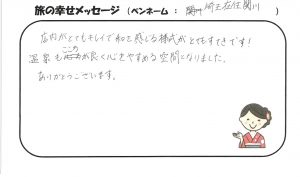 旅の幸せメッセージ (ペンネーム : 関州 埼玉在住関川 )
店内がとてもキレイで和を感じる様式がとてもすてきです!
温泉も心が良く心をやすめる空間になりました。
ありがとうございます。